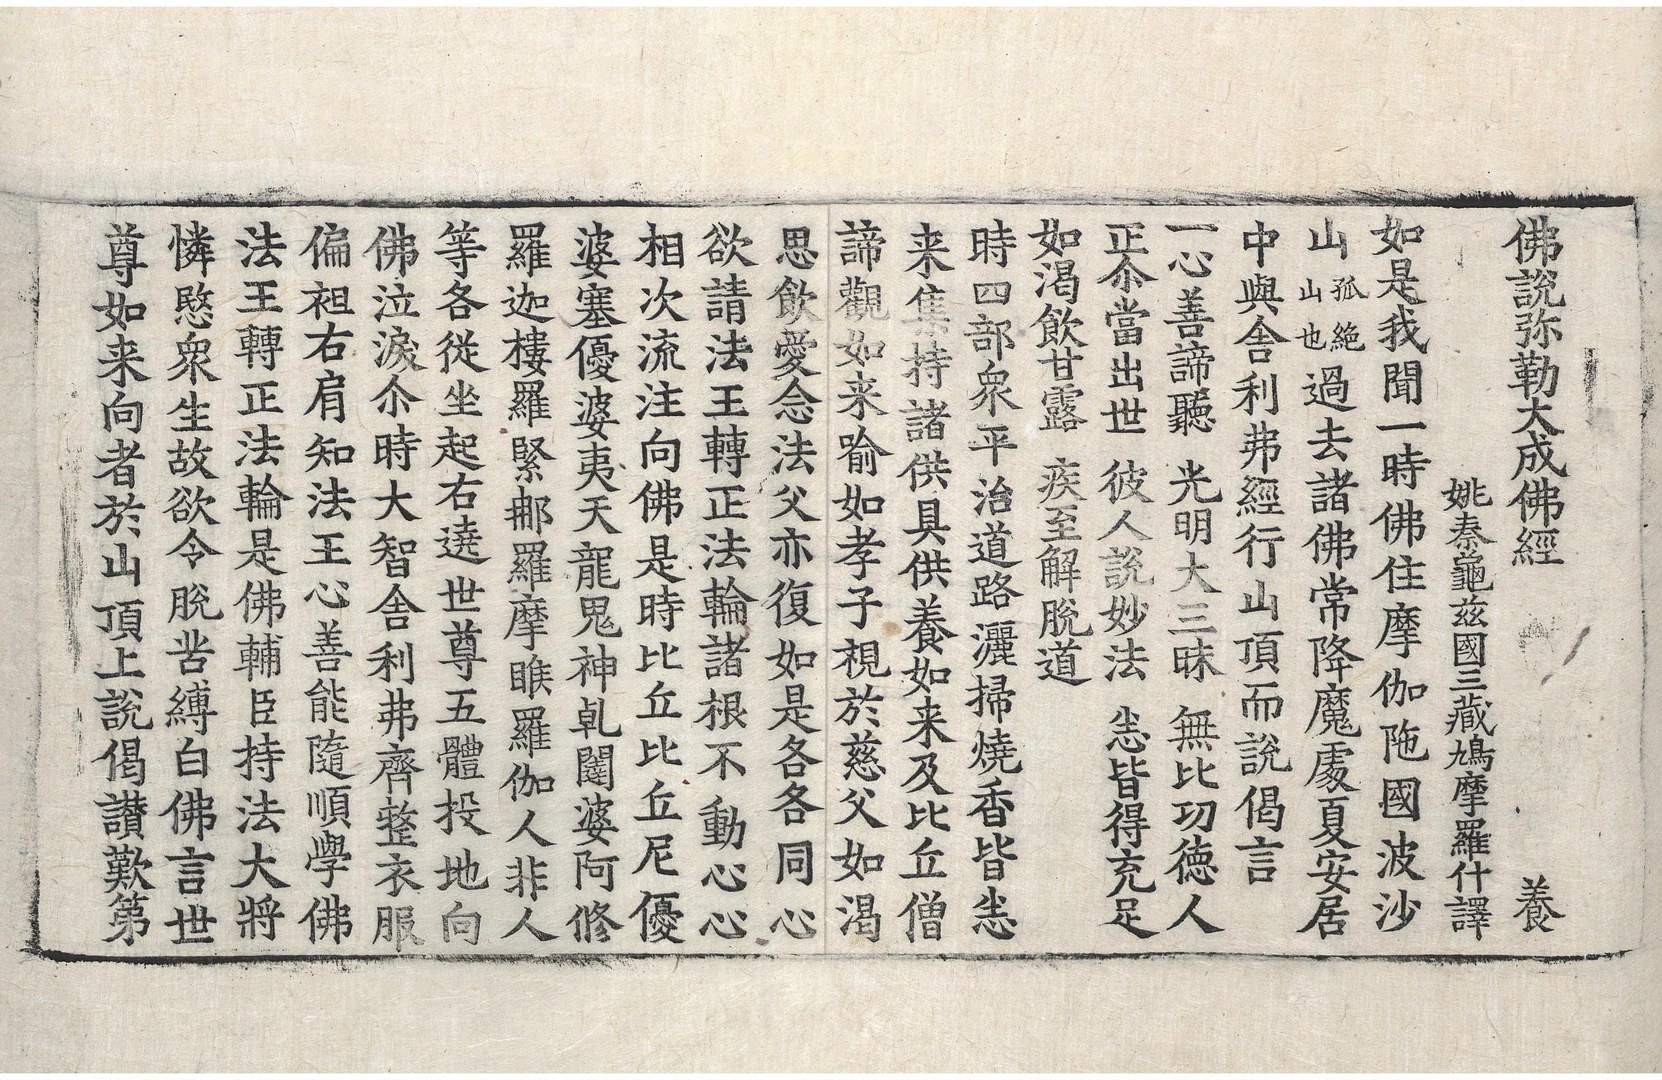 佛說弥勒大成佛經　養
姚秦龜茲國三藏鳩摩羅什譯
如是我聞一時佛住摩伽陁國波沙
山孤絶山也過去諸佛常降魔處夏安居
中與舍利弗經行山頂而說偈言
一心善諦聽　光明大三昧　無比功德人
正尒當出世　彼人說妙法　悉皆得充足
如渴飲甘露　疾至解脫道
時四部衆平治道路灑掃燒香皆悉
来集持諸供具供養如来及比丘僧
諦觀如来喻如孝子視於慈父如渴
思飲愛念法父亦復如是各各同心
欲請法王轉正法輪諸根不動心心
相次流注向佛是時比丘比丘尼優
婆塞優婆夷天龍鬼神乹闥婆阿修
羅迦樓羅緊那羅摩睺羅伽人非人
等各從坐起右遶世尊五體投地向
佛泣淚尒時大智舍利弗齊整衣服
偏袒右肩知法王心善能隨順學佛
法王轉正法輪是佛輔臣持法大將
憐愍衆生故欲令脫苦縛白佛言世
尊如来向者於山頂上說偈讃歎第